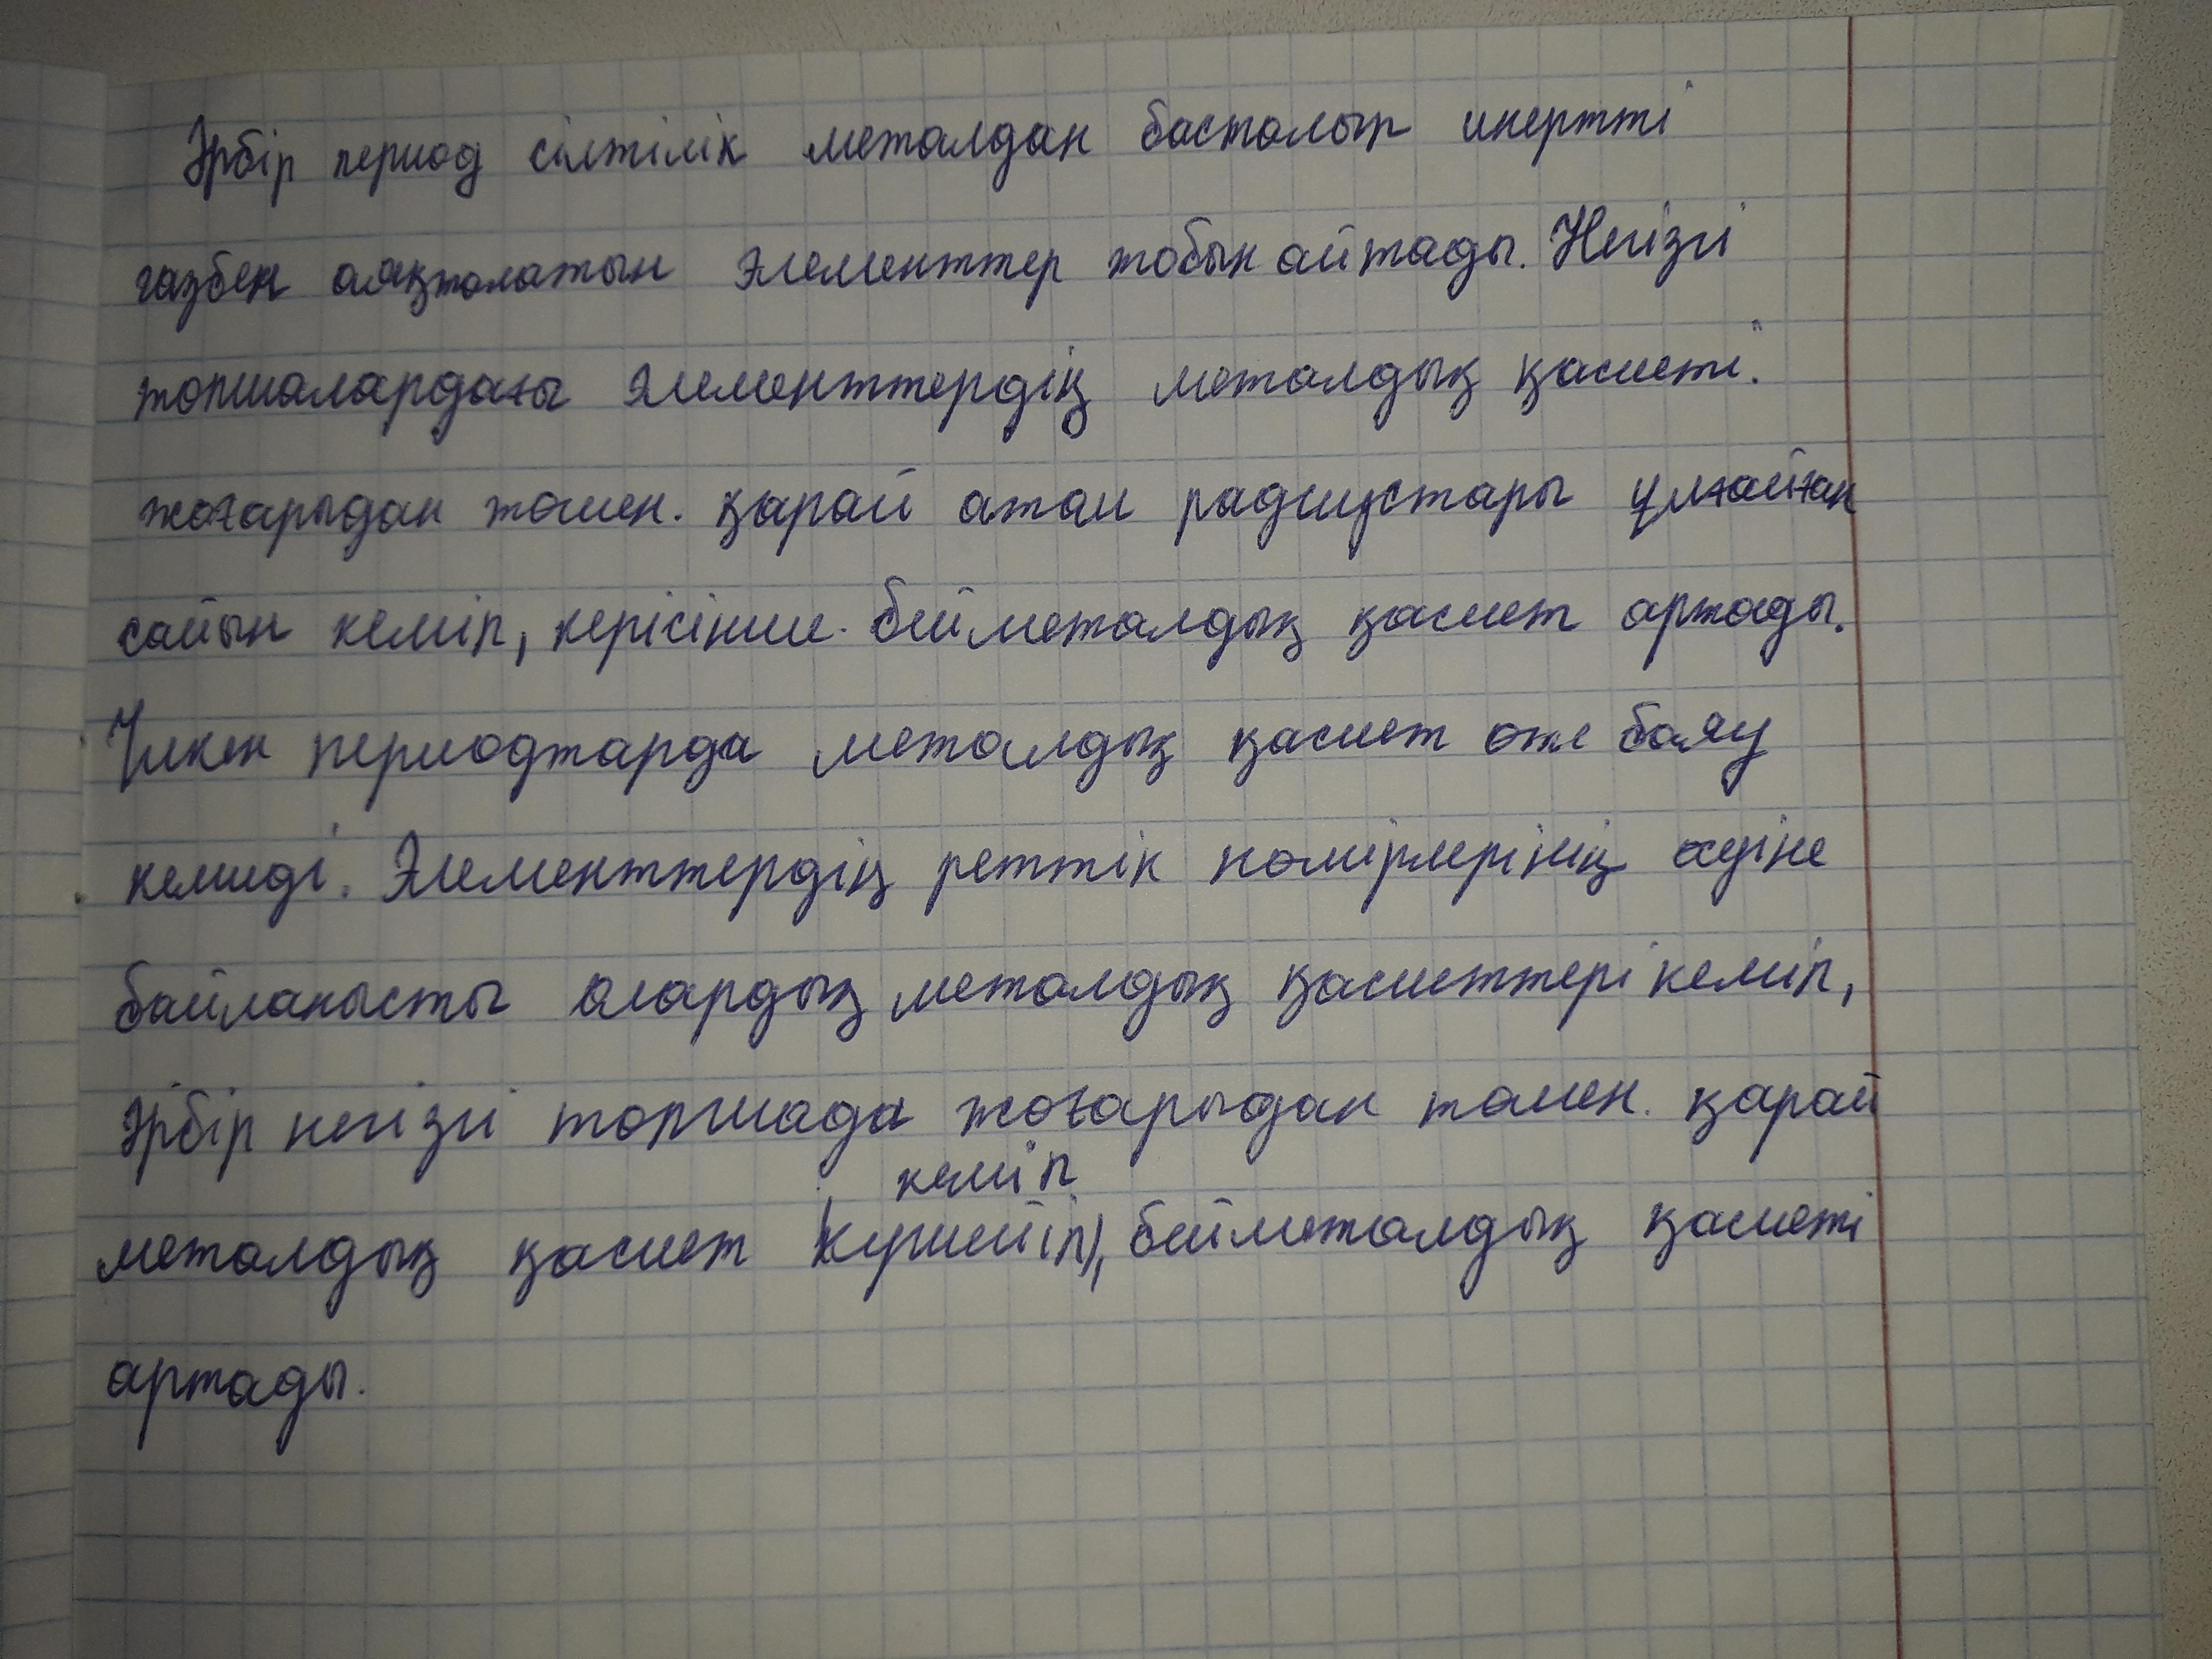 Әрбір период сілтілік металдан басталып инертті
газбен аяқталатын элементтер тобын айтады. Негізгі
топшалардағы элементтердің металдық қасиеті.
жоғарыдан төмен. қарай атом радиустары ұлғайған
сайын кеміп, керісінше. бейметалдық қасиет артады.
Үлкен периодтарда металдық қасиет өте баяу
кемиді. Элементтердің реттік нөмірлерінің өсуіне
байланысты олардың металдық қасиеттері кеміп,
әрбір негізгі топшада жоғарыдан төмен. қарай
кеміп
металдық қасиет (күшейіп), бейметалдық қасиеті
артады.